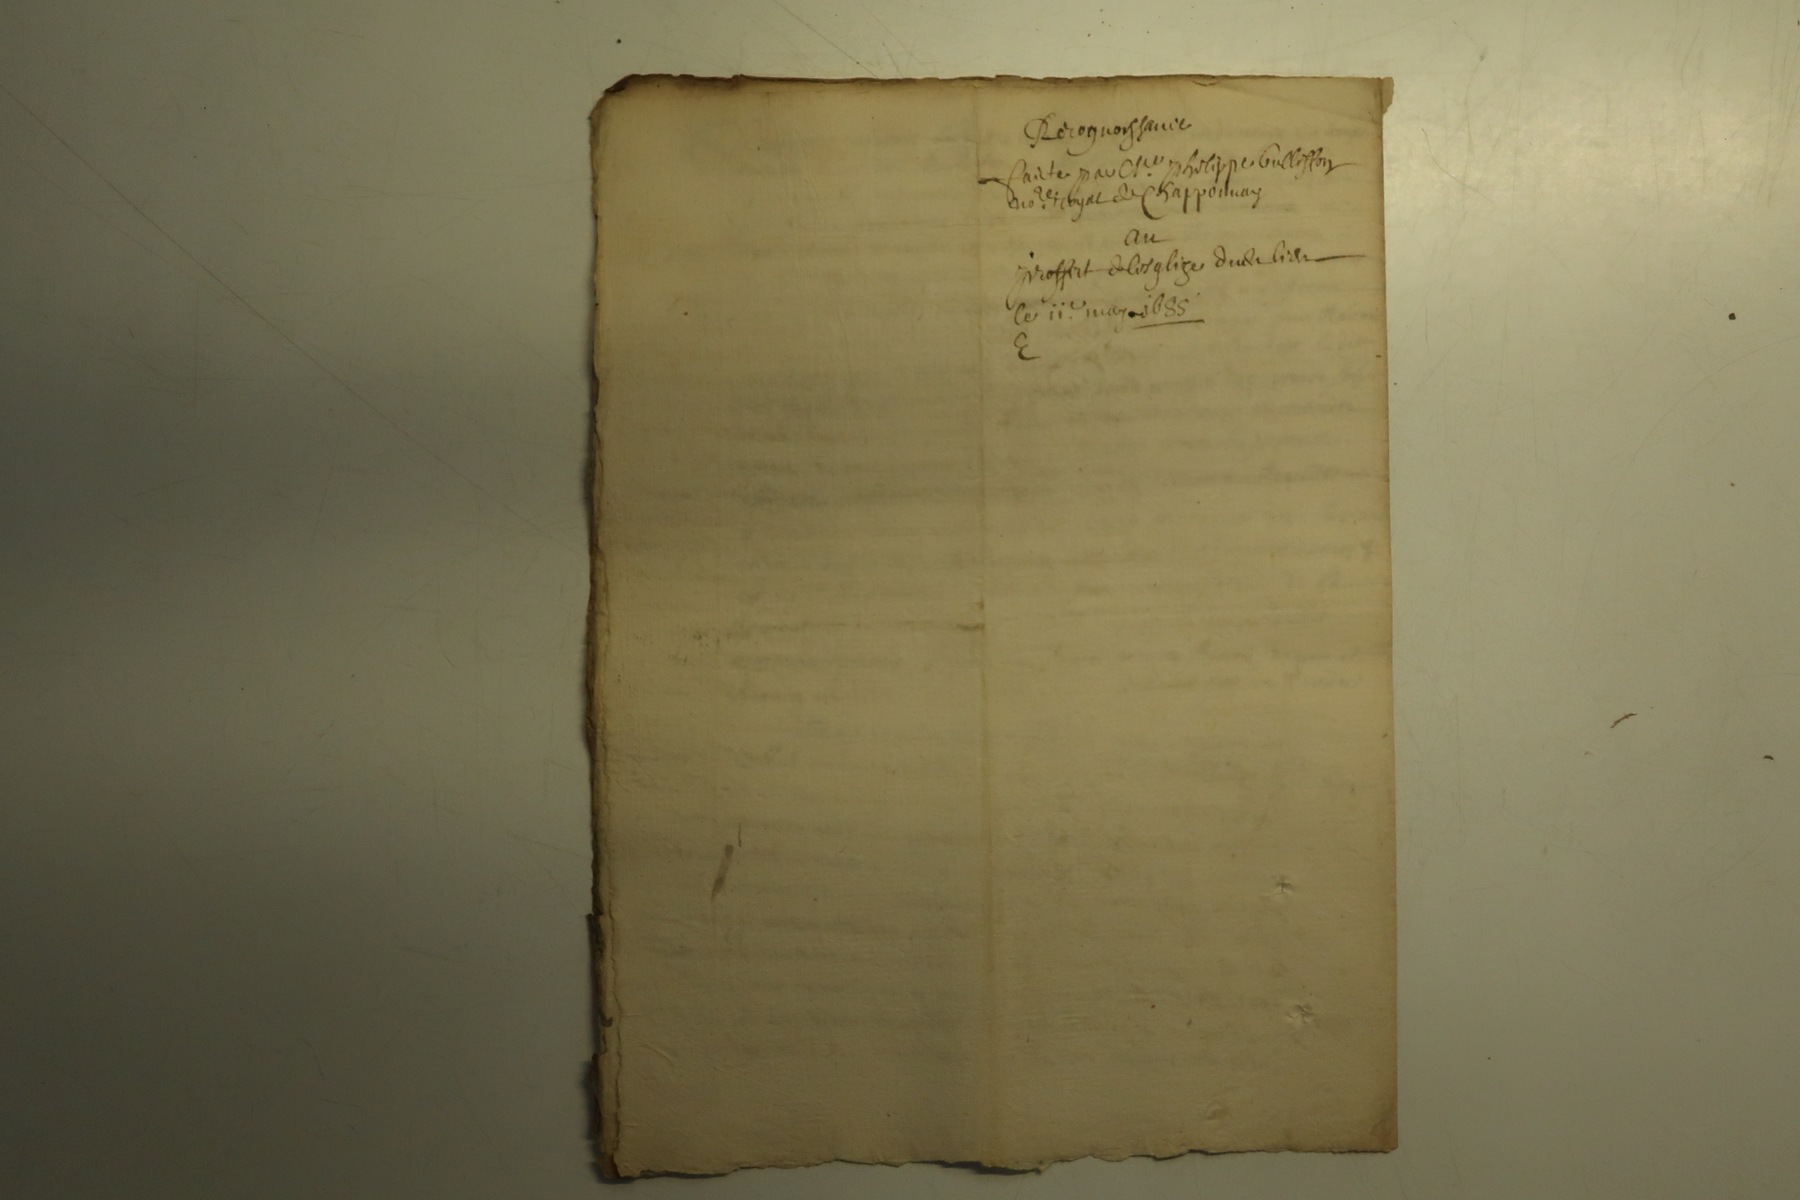 Recognoissance
faicte par Me. philippe bullioffon
no.re royal de Chapponnay
au
proffict de lesglize dudit lieu
le ii.e may 1655
E